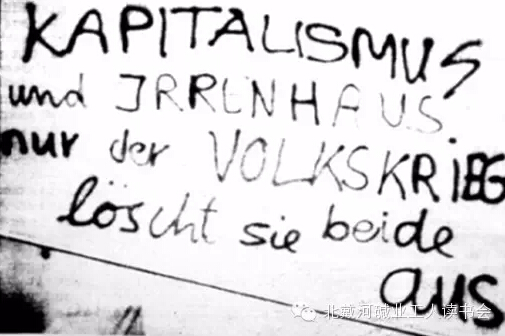 KAPITALISMUS
und IRRENHAUS
nur der VOLKSKRIEG
löscht sie beide
aus
北戴河碱业工人读书会